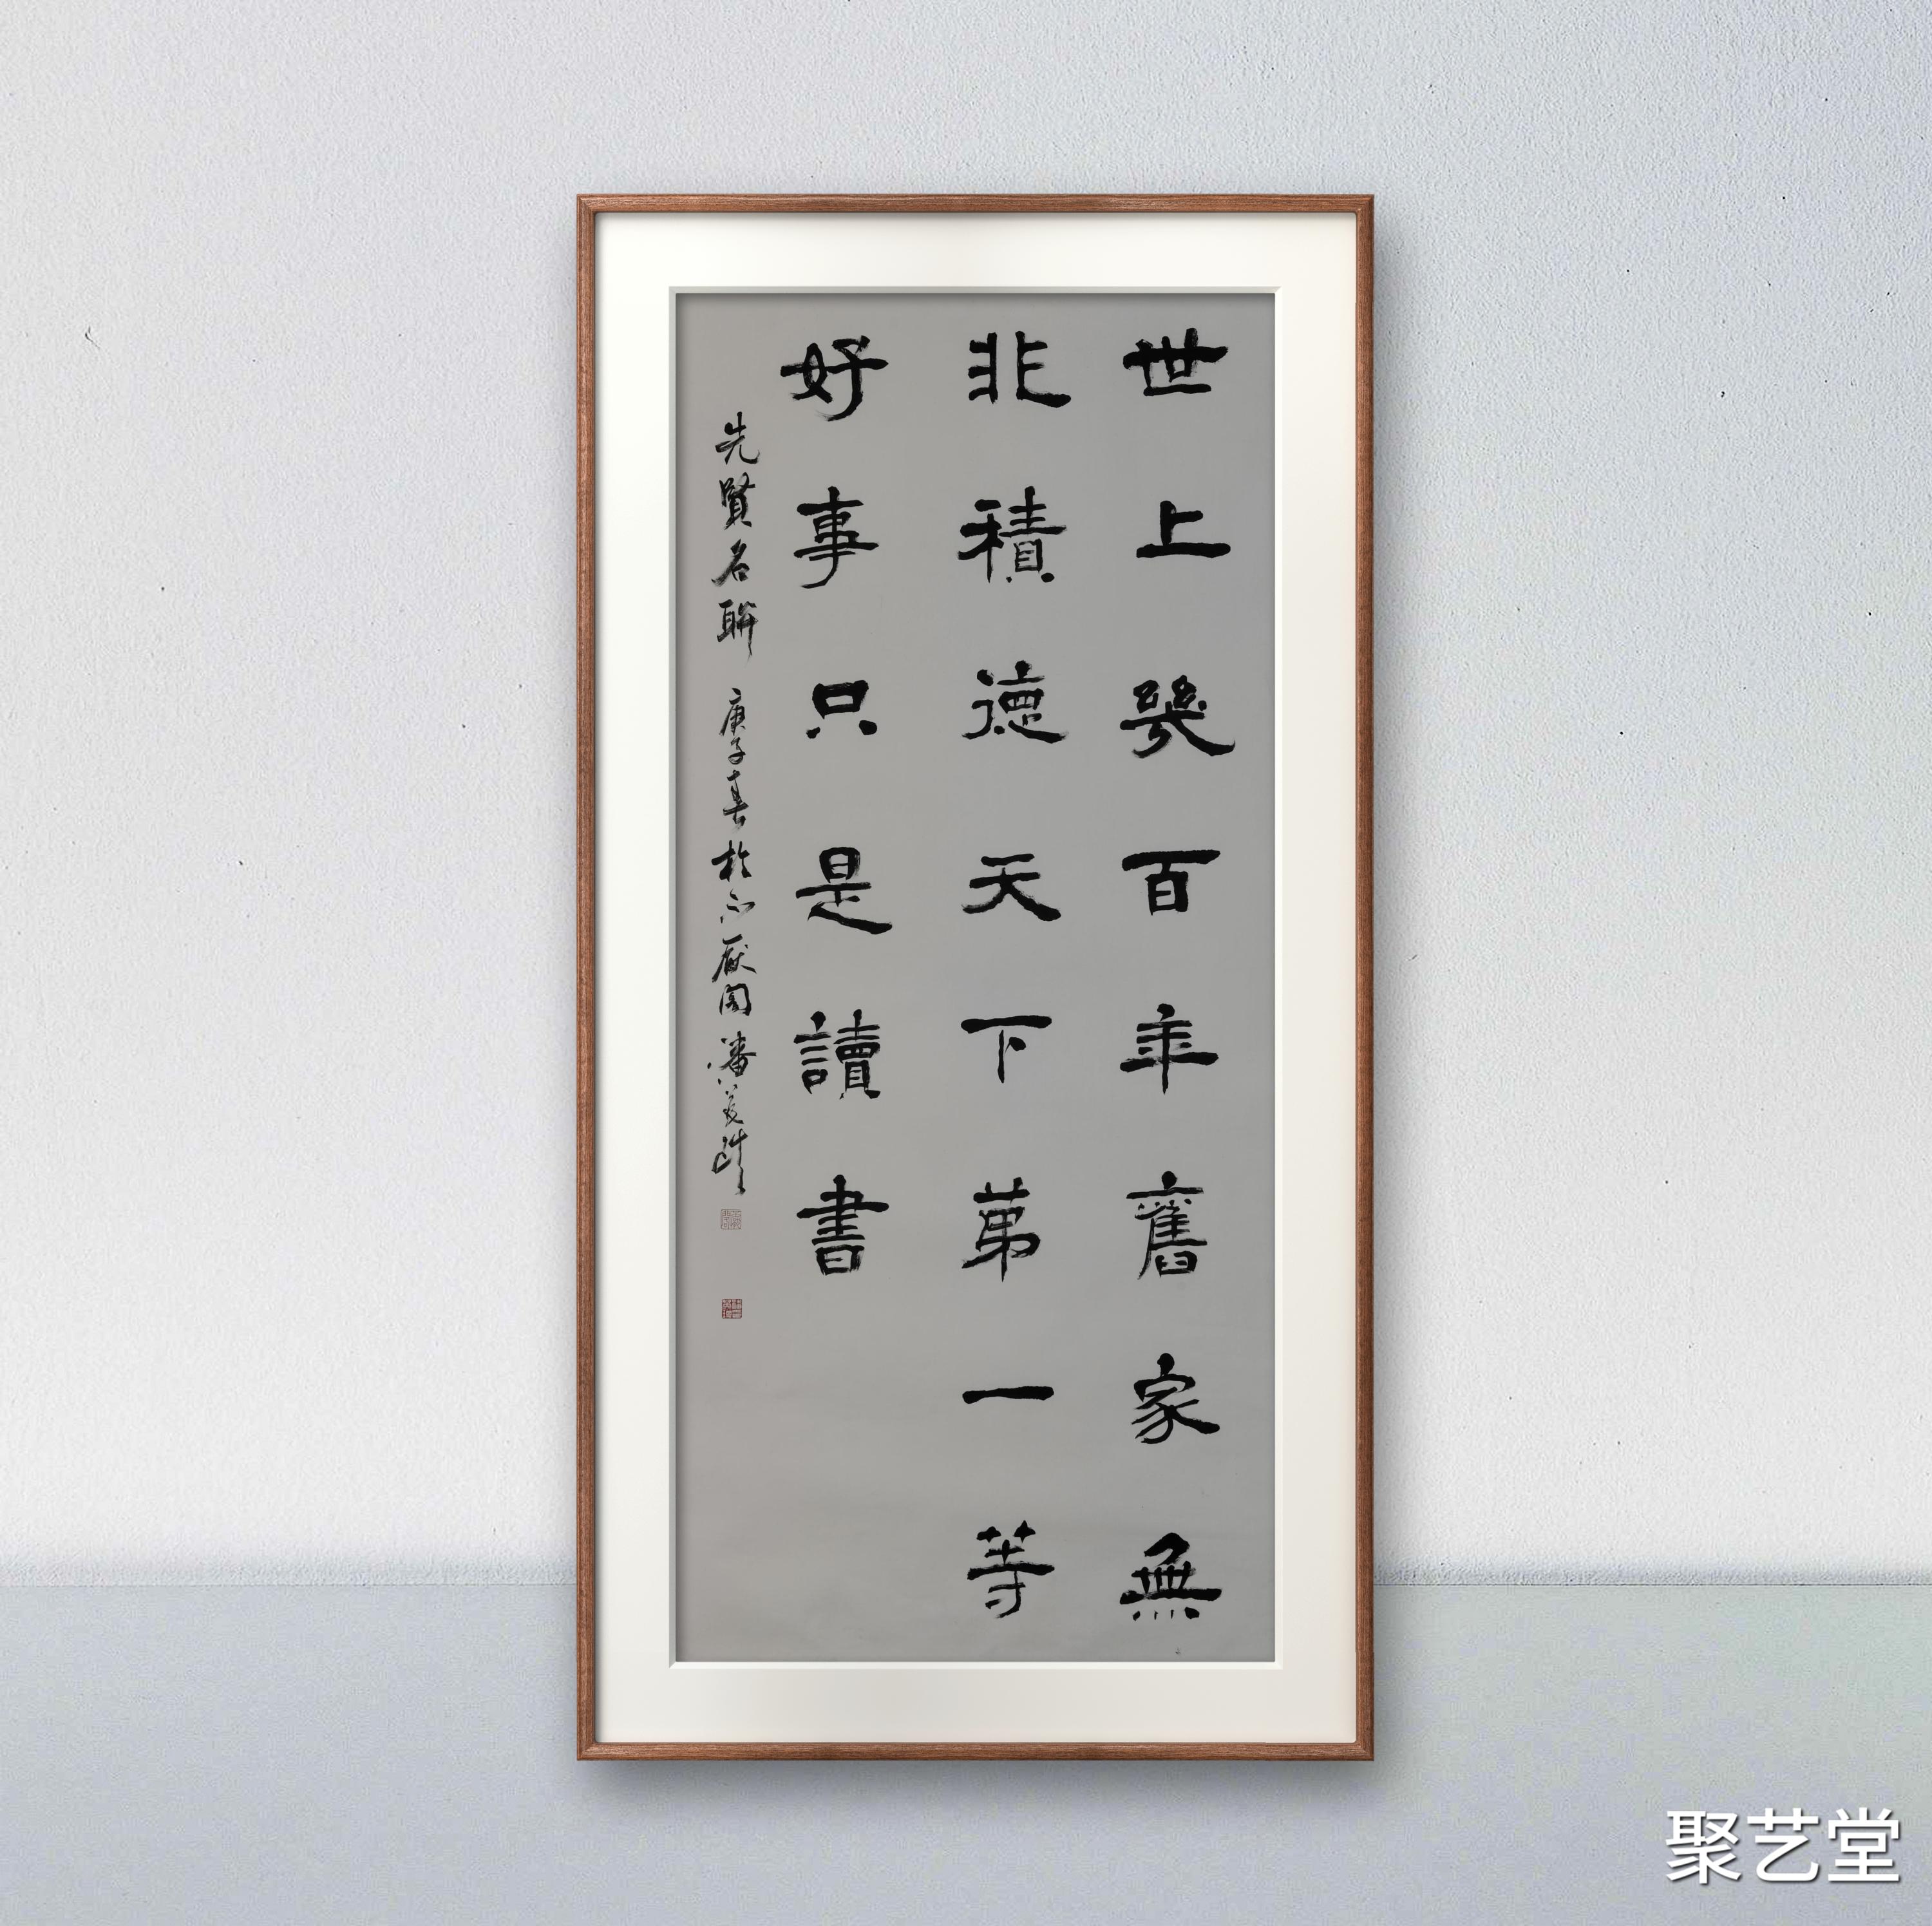 世上幾百年舊家無
非積德天下第一等
好事只是讀書
先賢名聯 庚子春於不厭閣潘
聚艺堂